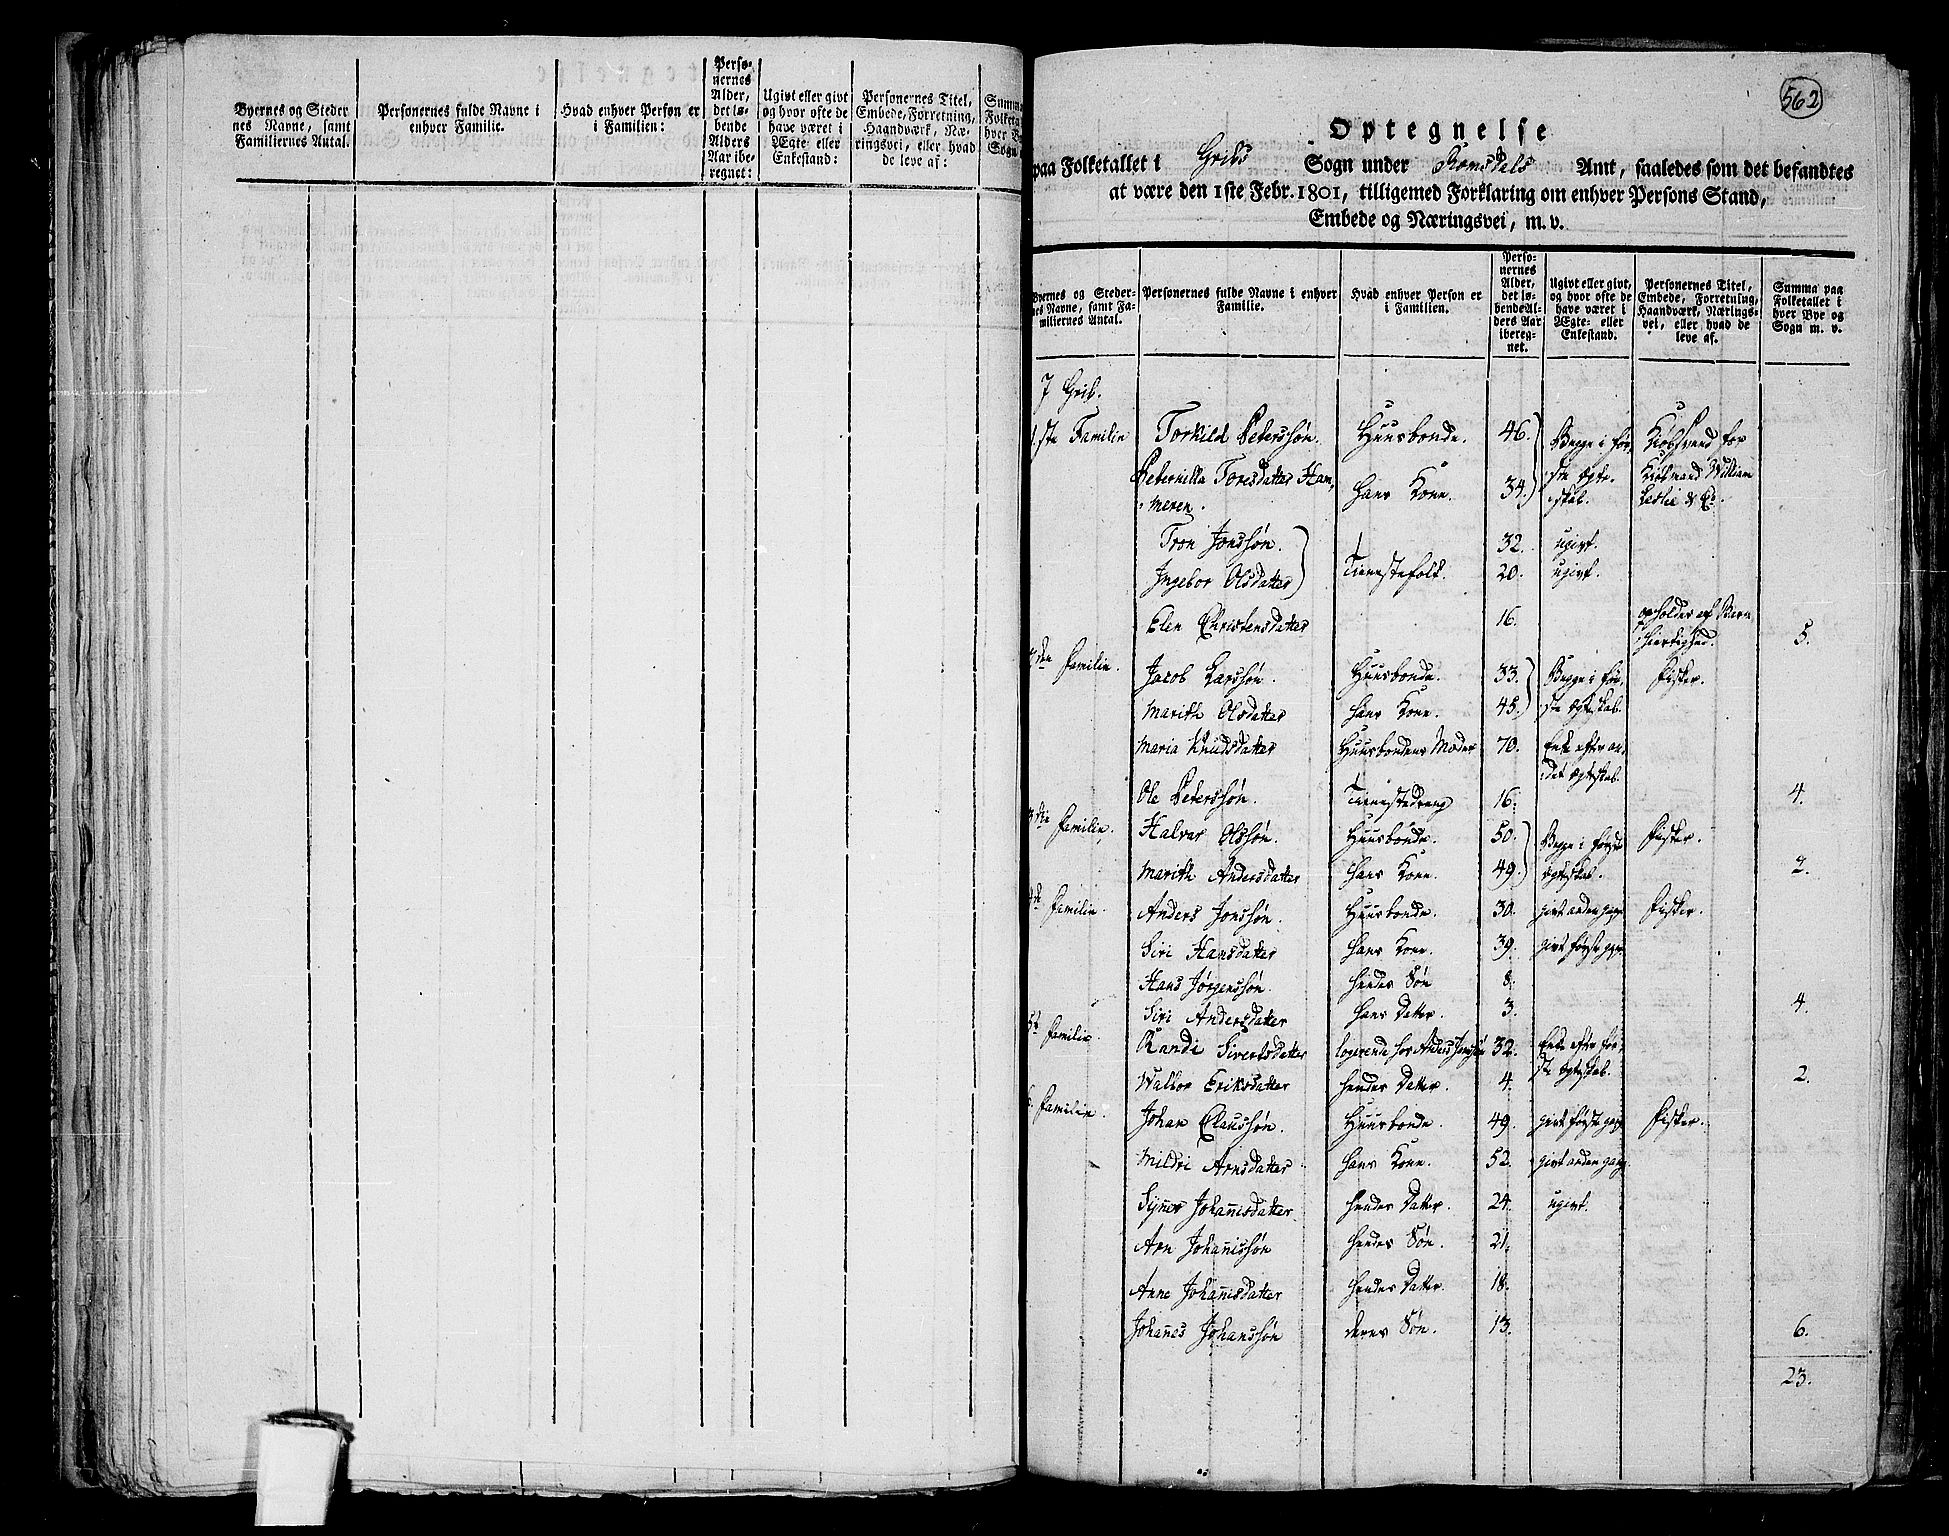 Byernes og Steder nes Navne, samt Familiernes Antal.
Personernes fulde Navne i enhver Familie.
Hvad enhver Person er i Familien:
Perso- nernes Alder, det lø- bende Alders Aar ibe- regnet:
Ugivt eller givt og hvor ofte de have været i Ægte- eller Enkestand:
Personernes Titel, Embede, Forretning, Haandværk, Næ- ringsvei, eller hvad de leve af:
562
Optegnelse
paa Folketallet i Gribs Sogn under Romsdals Amt, saaledes som det befandtes
at være den 1ste Febr. 1801, tilligemed Forklaring om enhver Persons Stand,
Embede og Næringsvei, m. v.
Byernes og Steder- nes Navne, samt Fa- miliernes Antal.
Personernes fulde Navne i enhver Familie.
Hvad enhver Person er i Familien.
Perso- nernes Alder, det lø- bende Al- ders Aar ibereg- net.
Ugivt eller givt, og hvor ofte de have været i Ægte- eller Enkestand.
Personernes Titel, Embede, Forretning, Haandværk, Nærings- vei, eller hvad de leve af.
Summa paa Folketallet i hver Bye og Sogn m. v.
I Grib.
1ste Familie Torkild Peterssøn. Huusbonde. 46. Begge i før- Kiøbsvend for
Peternilla Toresdatter Ham- hans Kone. 34. ste Ægte- Kiøbmand William
meren. skab. Leslie & Co.
Tron Jonssøn. 32. ugivt.
Ingebor Olsdatter Tienestefolk. 20. ugivt.
Elen Christensdatter 16. opholdes af Barm-
hiertighed. 5.
2den Familie. Jacob Larssøn. Huusbonde. 33. Begge i før- Fisker.
Marith Olsdatter hans Kone. 45. ste Ægteskab.
Maria Knudsdatter Huusbondens Moder 70. Enke efter an-
det Ægteskab.
Ole Peterssøn. Tienestedreng 16. 4.
3die Familie. Halvar Olssøn. Huusbonde. 50. Begge i første Fisker.
Marith Andersdatter hans Kone. 49. Ægteskab. 2.
4de Familie. Anders Jonssøn. Huusbonde. 30. givt anden gang Fisker.
Siri Hansdatter hans Kone. 39. givt første gang
Hans Jørgenssøn. hendes Søn 8.
Siri Andersdatter hans Datter. 3. 4.
5te Familie. Randi Sivertsdatter logerende hos Anders Jonssøn 32. Enke efter før-
ste Ægteskab.
Walbor Eriksdatter hendes Datter. 4. 2.
6. Familie. Johan Claussøn. Huusbonde. 49. givt første gang Fisker.
Mildri Arnsdatter hans Kone. 52. givt anden gang
Synev Johannisdatter. hendes Datter. 24. ugivt.
Arn Johannissøn hendes Søn. 21.
Anne Johannisdatter hendes Datter. 18.
Johannes Johanssøn deres Søn. 13. 6.
23.